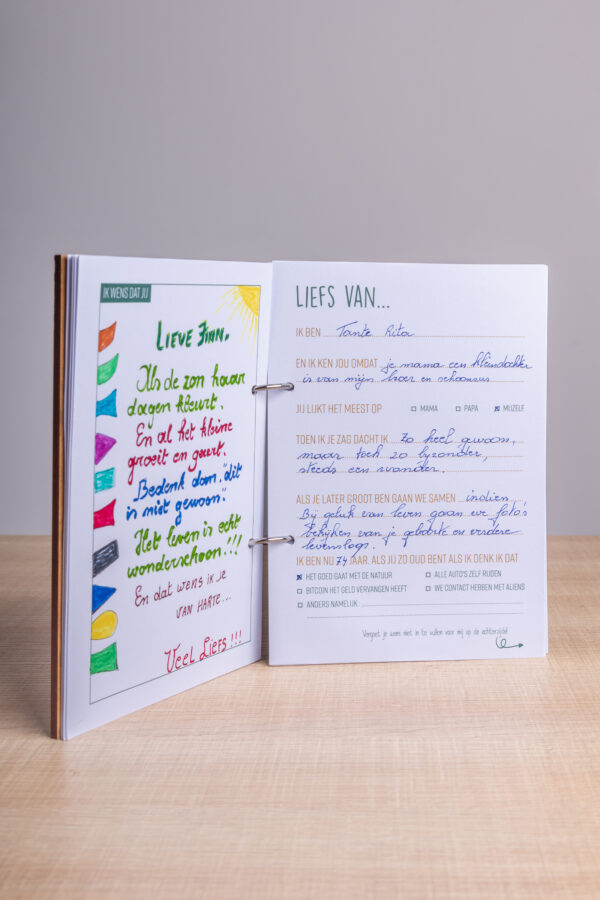 IK WENS DAT JIJ
LIEVE FINN,
Als de zon haar
dagen kleurt.
En al het kleine
groeit en geurt.
Bedenk dan, "dit
is niet gewoon".
Het leven is echt
wonderschoon!!!
En dat wens ik je
VAN HARTE...
Veel Liefs!!!
LIEFS VAN...
IK BEN Tante Rita
EN IK KEN JOU OMDAT je mama een kleindochter
is van mijn broer en schoonzus
JIJ LIJKT HET MEEST OP MAMA PAPA MIJZELF
TOEN IK JE ZAG DACHT IK Zo heel gewoon,
maar toch zo bijzonder,
steeds een wonder.
ALS JE LATER GROOT BEN GAAN WE SAMEN indien
Bij geluk van leven gaan we foto's
bekijken van je geboorte en verdere
levensloop.
IK BEN NU 74 JAAR. ALS JIJ ZO OUD BENT ALS IK DENK IK DAT
HET GOED GAAT MET DE NATUUR ALLE AUTO'S ZELF RIJDEN
BITCOIN HET GELD VERVANGEN HEEFT WE CONTACT HEBBEN MET ALIENS
ANDERS NAMELIJK
Vergeet je wens niet in te vullen voor mij op de achterzijde!